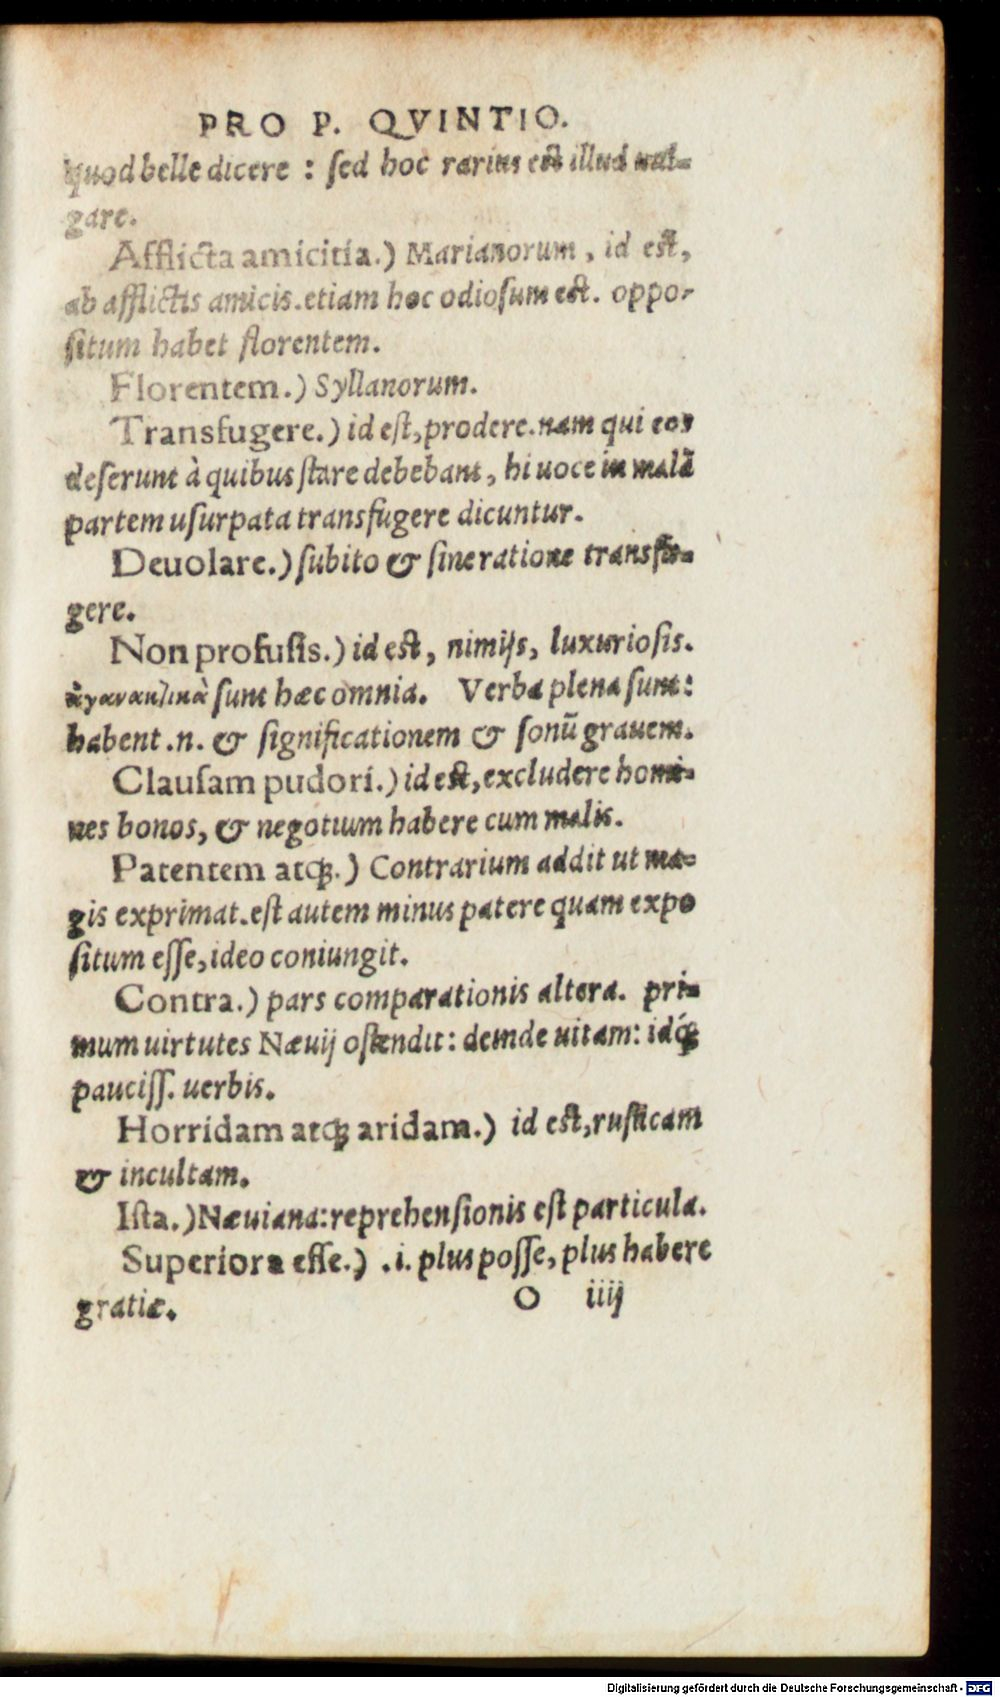 PRO P. QVINTIO.
quod belle dicere : sed hoc rarius est illud uul-
gare.
Afflicta amicitia.) Marianorum , id est,
ab afflictis amicis. etiam hoc odiosum est. oppo-
situm habet florentem.
Florentem.) Syllanorum.
Transfugere.) id est, prodere. nam qui eos
deserunt à quibus stare debebant, hi uoce in malā
partem usurpata transfugere dicuntur.
Deuolare.) subito & sine ratione transfu-
gere.
Non profusis.) id est, nimijs, luxuriosis.
ἀγανακτικὰ sunt hæc omnia. Verba plena sunt:
habent .n. & significationem & sonū grauem.
Clausam pudori.) id est, excludere homi-
nes bonos, & negotium habere cum malis.
Patentem atq;.) Contrarium addit ut ma-
gis exprimat. est autem minus patere quam expo
situm esse, ideo coniungit.
Contra.) pars comparationis altera. pri-
mum uirtutes Næuij ostendit: deinde uitam: idq́;
pauciss. uerbis.
Horridam atq; aridam.) id est, rusticam
& incultam.
Ista.) Næuiana: reprehensionis est particula.
Superiora esse.) .i. plus posse, plus habere
gratiæ.
O iiij
Digitalisierung gefördert durch die Deutsche Forschungsgemeinschaft - DFG